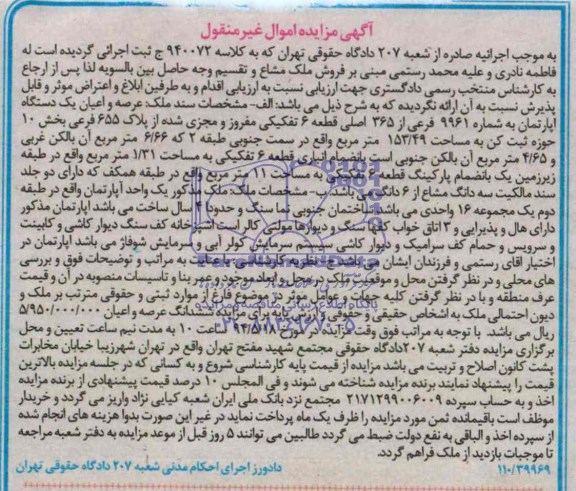 آگهی مزایده اموال غیرمنقول
به موجب اجرائیه صادره از شعبه ۲۰۷ دادگاه حقوقی تهران که به کلاسه ۹۴۰۰۷۲ ج ثبت اجرائی گردیده است له
فاطمه نادری و علیه محمد رستمی مبنی بر فروش ملک مشاع و تقسیم وجه حاصل بین بالسویه لذا پس از ارجاع
به کارشناس منتخب رسمی دادگستری جهت ارزیابی نسبت به ارزیابی اقدام و به طرفین ابلاغ و اعتراض موثر و قابل
پذیرش نسبت به آن ارائه نگردیده که به شرح ذیل می باشد: الف- مشخصات سند ملک: عرصه و اعیان یک دستگاه
آپارتمان به شماره ۹۹۶۱ فرعی از ۳۶۵ اصلی قطعه ۶ تفکیکی مفروز و مجزی شده از پلاک ۶۵۵ فرعی بخش ۱۰
حوزه ثبت کن به مساحت ۱۵۳/۴۹ متر مربع واقع در سمت جنوبی طبقه ۲ که ۶/۶۶ متر مربع آن بالکن غربی
و ۴/۶۵ متر مربع آن بالکن جنوبی است بانضمام انباری قطعه ۶ تفکیکی به مساحت ۱/۳۱ متر مربع واقع در طبقه
زیرزمین یک بانضمام پارکینگ قطعه ۶ تفکیکی به مساحت ۱۱ متر مربع واقع در طبقه همکف که دارای دو جلد
سند مالکیت سه دانگ مشاع از ۶ دانگ می باشند. ب- مشخصات ملک: ملک مذکور یک واحد آپارتمان واقع در طبقه
دوم یک مجموعه ۱۶ واحدی می باشد ساختمان جنوبی نما سنگ و حدودا ۴ سال ساخت می باشد آپارتمان مذکور
دارای هال و پذیرایی و ۳ اتاق خواب کفها سنگ و دیوارها مولتی کالر است آشپزخانه کف سنگ دیوار کاشی و کابینت
و سرویس و حمام کف سرامیک و دیوار کاشی سیستم سرمایش کولر آبی و گرمایش شوفاژ می باشد آپارتمان در
اختیار آقای رستمی و فرزندان ایشان می باشد ج- نظریه کارشناسی با عنایت به مراتب و توضیحات فوق و بررسی
های محلی و در نظر گرفتن محل و موقعیت ملک در محل و ابعاد موجود و عمر بنا و تاسیسات منصوبه در آن و قیمت
عرف منطقه و با در نظر گرفتن کلیه جهات و عوامل موثر در موضوع فارغ از موارد ثبتی و حقوقی مترتب بر ملک و
دیون احتمالی ملک به اشخاص حقیقی و حقوقی و ارزش پایه برای مزایده ششدانگ عرصه و اعیان ۵/۹۵۰/۰۰۰/۰۰۰
ریال می باشد. با توجه به مراتب فوق وقت مزایده در مورخ ۹۴/۵/۱۸ ساعت ۱۰ به مدت نیم ساعت تعیین و محل
برگزاری مزایده دفتر شعبه ۲۰۷ دادگاه حقوقی مجتمع شهید مفتح تهران واقع در تهران شهرزیبا خیابان مخابرات
پشت کانون اصلاح و تربیت می باشد مزایده از قیمت پایه کارشناسی شروع و به کسانی که در جلسه مزایده بالاترین
قیمت را پیشنهاد نمایند برنده مزایده شناخته می شوند و فی المجلس ۱۰ درصد قیمت پیشنهادی از برنده مزایده
اخذ و به حساب سپرده ۲۱۷۱۲۹۹۰۰۶۰۰۹ مجتمع نزد بانک ملی ایران شعبه کیایی نژاد واریز می گردد و خریدار
موظف است باقیمانده ثمن مورد مزایده را ظرف یک ماه پرداخت نماید در غیر این صورت بدوا هزینه های انجام شده
از سپرده اخذ و الباقی به نفع دولت ضبط می گردد طالبین می توانند ۵ روز قبل از موعد مزایده به دفتر شعبه مراجعه
تا موجبات بازدید از ملک فراهم گردد.
۱۱۰/۳۹۹۶۹ دادورز اجرای احکام مدنی شعبه ۲۰۷ دادگاه حقوقی تهران